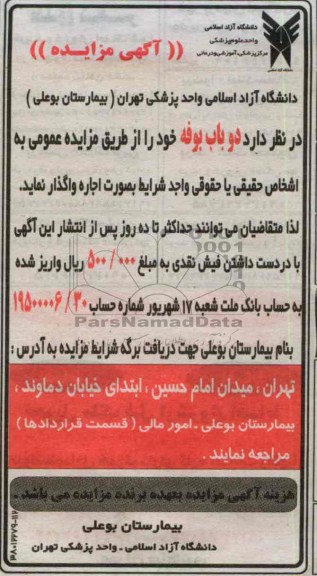 دانشگاه آزاد اسلامی
واحد علوم پزشکی
مرکز پزشکی، آموزشی و درمانی
(( آگهی مزایده ))
دانشگاه آزاد اسلامی واحد پزشکی تهران ( بیمارستان بوعلی )
در نظر دارد دو باب بوفه خود را از طریق مزایده عمومی به
اشخاص حقیقی یا حقوقی واجد شرایط بصورت اجاره واگذار نماید.
لذا متقاضیان می توانند حداکثر تا ده روز پس از انتشار این آگهی
با در دست داشتن فیش نقدی به مبلغ ۵۰۰/۰۰۰ ریال واریز شده
به حساب بانک ملت شعبه ۱۷ شهریور شماره حساب ۱۹۵۰۰۰۰۶/۳۰
ParsNamadData
بنام بیمارستان بوعلی جهت دریافت برگه شرایط مزایده به آدرس :
تهران ، میدان امام حسین ، ابتدای خیابان دماوند ،
بیمارستان بوعلی ـ امور مالی ( قسمت قراردادها )
مراجعه نمایند .
هزینه آگهی مزایده بعهده برنده مزایده می باشد .
بیمارستان بوعلی
دانشگاه آزاد اسلامی ـ واحد پزشکی تهران